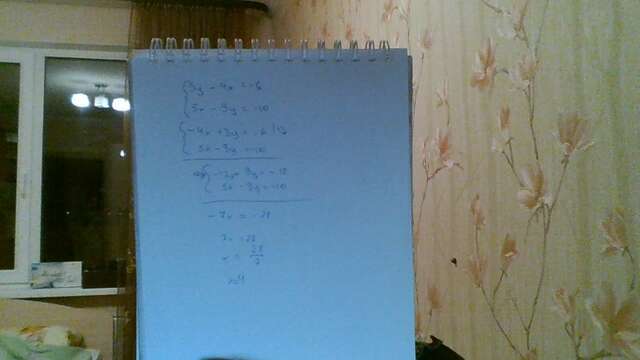 3y - 4x = -6
5x - 9y = -10
-4x + 3y = -6 | ·3
5x - 9y = -10
-12x + 9y = -18
5x - 9y = -10
-7x = -28
7x = 28
x = 28/7
x=4